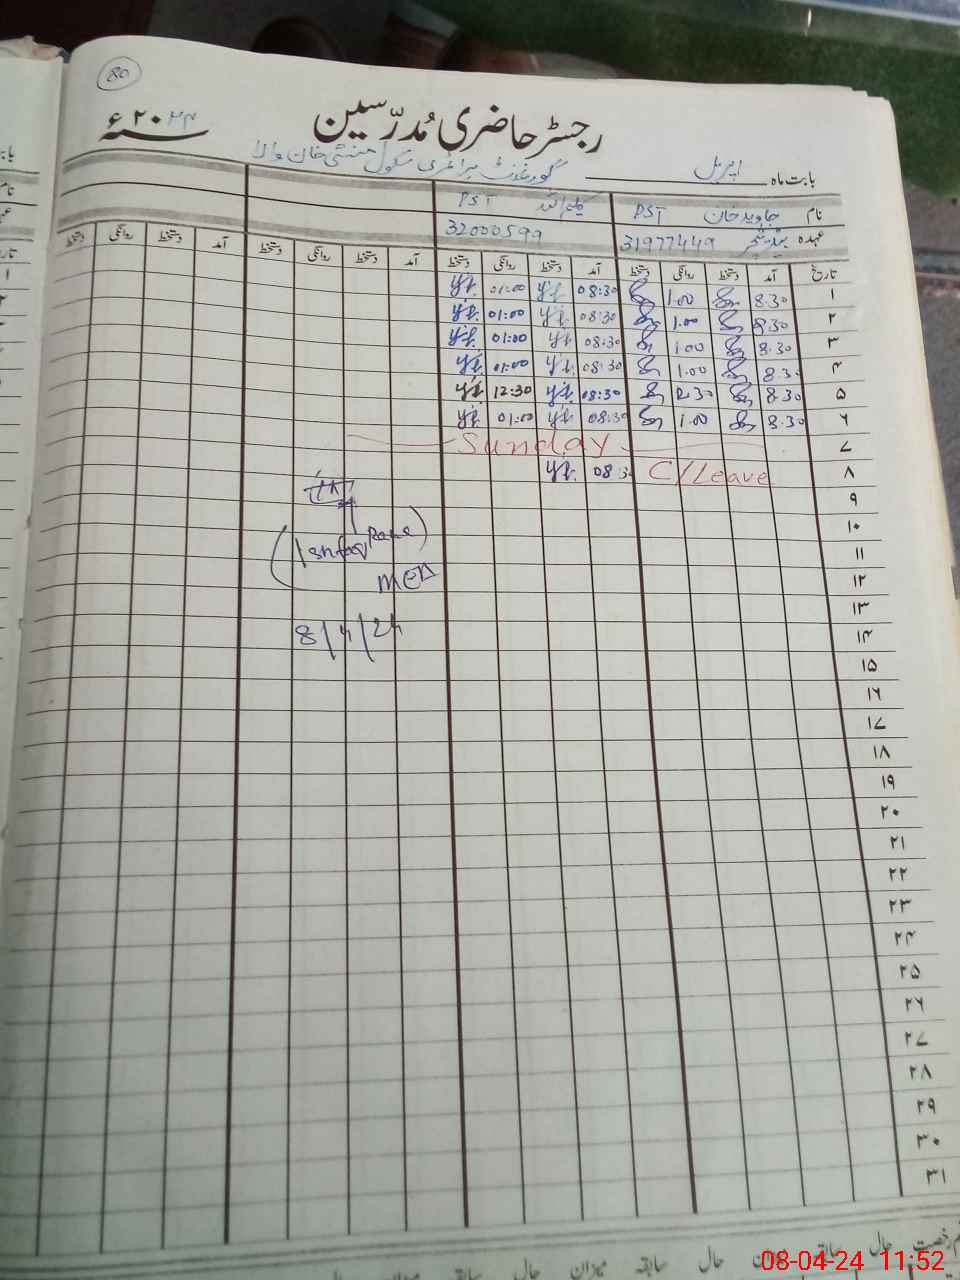 80
رجسٹر حاضری مُدرّسین
سنہ ۲۰۲۴ء
بابت ماہ اپریل گورنمنٹ پرائمری سکول خان والا
نام جاوید خان PST کلیم اللہ PST
عہدہ ہیڈ ٹیچر 31977449 32000599
تاریخ آمد دستخط روانگی دستخط آمد دستخط روانگی دستخط آمد دستخط روانگی دستخط آمد دستخط روانگی دستخط
۱ 8.30 1.00 08:30 01:00
۲ 8.30 1.00 08:30 01:00
۳ 8.30 1.00 08:30 01:00
۴ 8.30 1.00 08:30 01:00
۵ 8.30 12.30 08:30 12:30
۶ 8.30 1.00 08:30 01:00
۷ Sunday
۸ C/Leave 08:30
۹
۱۰
(Ishfaq Rana)
۱۱
MEA
۱۲
۱۳
8/4/24
۱۴
۱۵
۱۶
۱۷
۱۸
۱۹
۲۰
۲۱
۲۲
۲۳
۲۴
۲۵
۲۶
۲۷
۲۸
۲۹
۳۰
۳۱
رخصت حال سابقہ میزان حال سابقہ میزان حال سابقہ
08-04-24 11:52